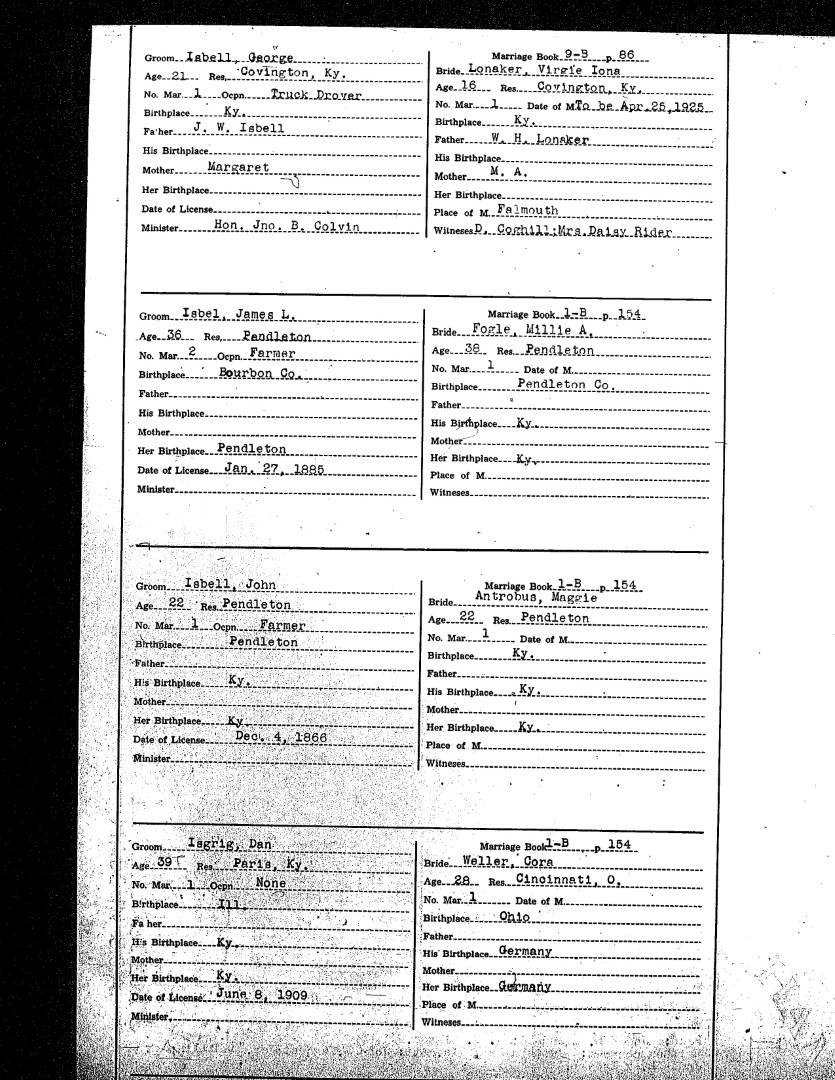 Groom Isbell, George
Age 21 Res. Covington, Ky.
No. Mar. 1 Ocpn. Truck Drover
Birthplace Ky.
Fa'her J. W. Isbell
His Birthplace
Mother Margaret
Her Birthplace
Date of License
Minister Hon. Jno. B. Colvin
Marriage Book 9-B p. 86
Bride Lonaker, Virgie Iona
Age 16 Res. Covington, Ky.
No. Mar 1 Date of M To be Apr. 25, 1925
Birthplace Ky.
Father W. H. Lonaker
His Birthplace
Mother M. A.
Her Birthplace
Place of M. Falmouth
Witneses D. Coghill; Mrs. Daisy Rider
Groom Isbel, James L.
Age 36 Res. Pendleton
No. Mar. 2 Ocpn. Farmer
Birthplace Bourbon Co.
Father
His Birthplace
Mother
Her Birthplace Pendleton
Date of License Jan. 27, 1885
Minister
Marriage Book 1-B p. 154
Bride Fogle, Millie A.
Age 38 Res. Pendleton
No. Mar. 1 Date of M.
Birthplace Pendleton Co.
Father
His Birthplace Ky.
Mother
Her Birthplace Ky.
Place of M.
Witneses
Groom Isbell, John
Age 22 Res. Pendleton
No. Mar. 1 Ocpn. Farmer
Birthplace Pendleton
Father
His Birthplace Ky.
Mother
Her Birthplace Ky
Date of License Dec. 4, 1866
Minister
Marriage Book 1-B p. 154
Bride Antrobus, Maggie
Age 22 Res. Pendleton
No. Mar. 1 Date of M.
Birthplace Ky.
Father
His Birthplace Ky.
Mother
Her Birthplace Ky.
Place of M.
Witneses
Groom Isgrig, Dan
Age 39 Res. Paris, Ky.
No. Mar. 1 Ocpn. None
Birthplace Ill.
Fa her
His Birthplace Ky.
Mother
Her Birthplace Ky.
Date of License June 8, 1909
Minister
Marriage Book 1-B p. 154
Bride Weller, Cora
Age 28 Res. Cincinnati, O.
No. Mar. 1 Date of M.
Birthplace Ohio
Father
His Birthplace Germany
Mother
Her Birthplace Germany
Place of M.
Witneses